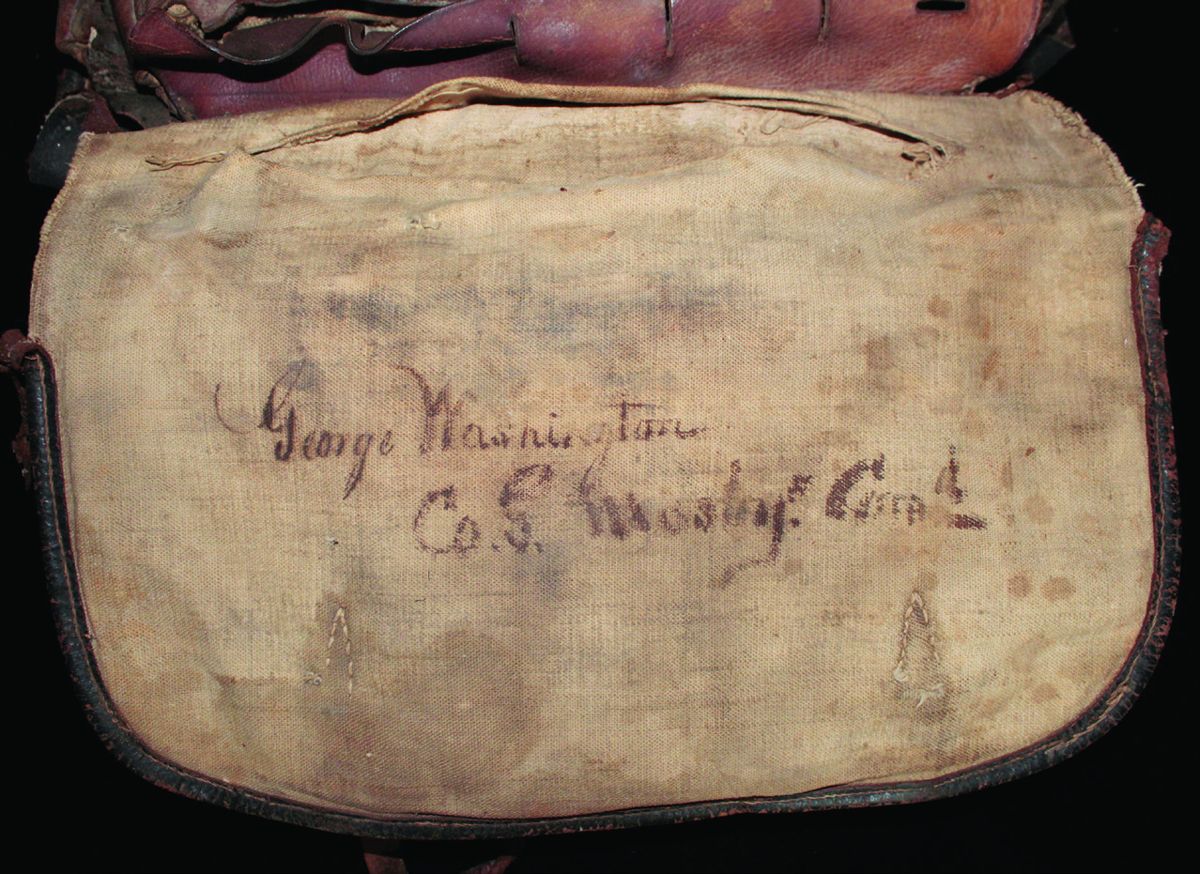 George Washington
Co. S. Mosby's Com'd